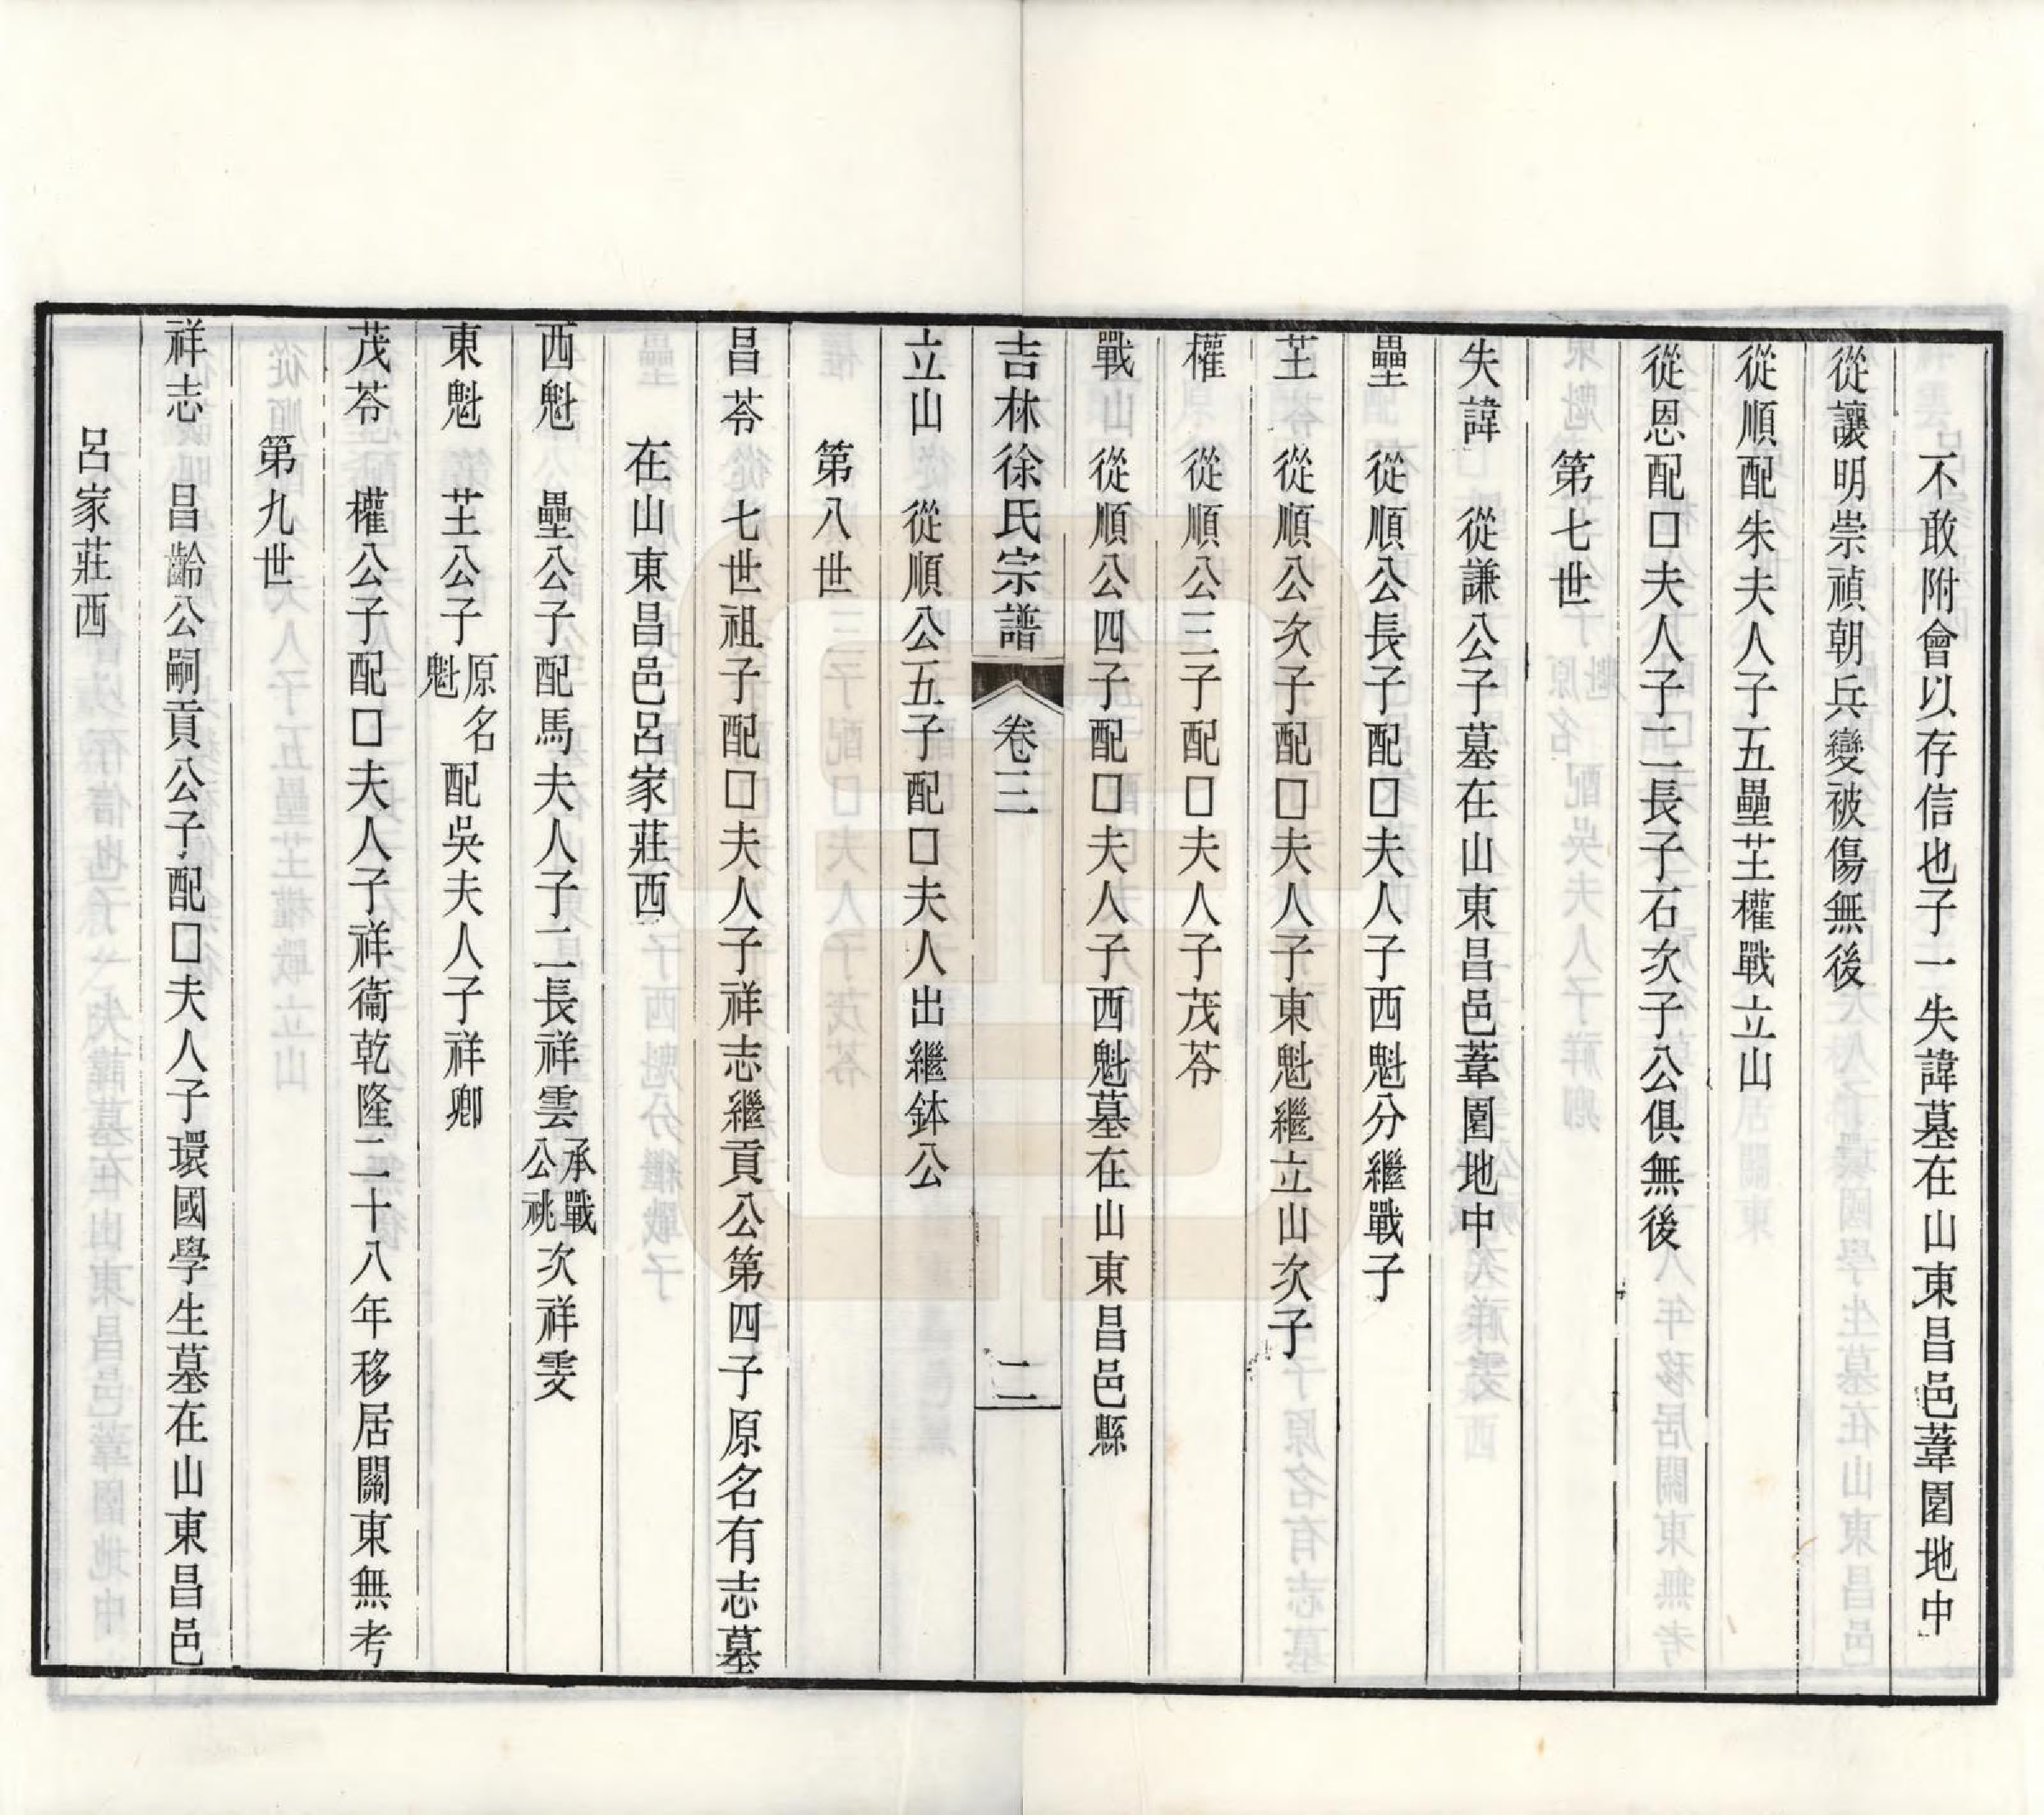 不敢附會以存信也子一失諱墓在山東昌邑葦園地中
從讓明崇禎朝兵變被傷無後
從順配朱夫人子五壘芏權戰立山
從恩配□夫人子二長子石次子公俱無後
第七世
失諱　從謙公子墓在山東昌邑葦園地中
壘　從順公長子配□夫人子西魁分繼戰子
芏　從順公次子配□夫人子東魁繼立山次子
權　從順公三子配□夫人子茂苓
戰　從順公四子配□夫人子西魁墓在山東昌邑縣
吉林徐氏宗譜　卷三　二
立山　從順公五子配□夫人出繼鉢公
第八世
昌苓　七世祖子配□夫人子祥志繼貢公第四子原名有志墓
在山東昌邑呂家莊西
西魁　壘公子配馬夫人子二長祥雲承戰公祧次祥雯
東魁　芏公子原名魁配吳夫人子祥卿
茂苓　權公子配□夫人子祥衞乾隆二十八年移居關東無考
第九世
祥志　昌齡公嗣貢公子配□夫人子環國學生墓在山東昌邑
呂家莊西